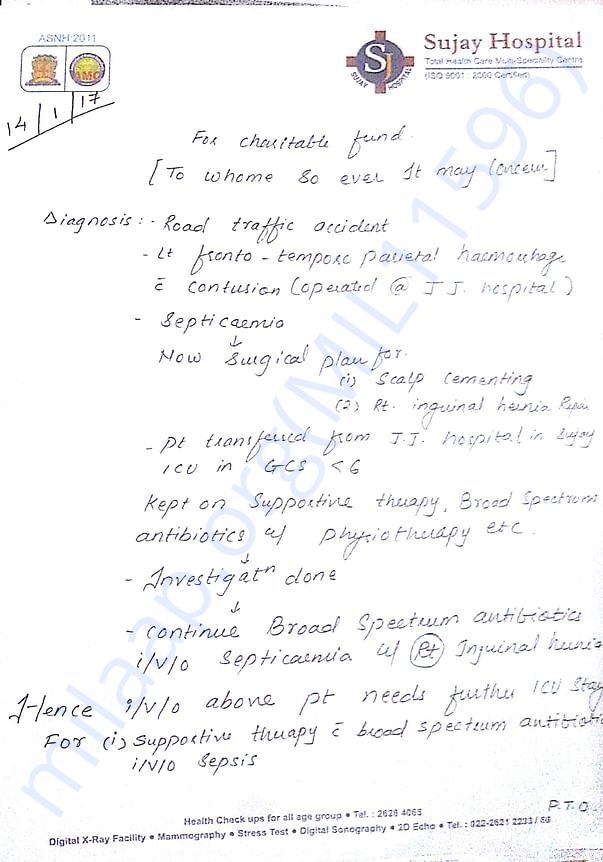 ASNH:2011
AMC
SJ
SUJAY HOSPITAL
Sujay Hospital
Total Health Care Multi-Speciality Centre
(ISO 9001 : 2000 Certified)
14/1/17
For charitable fund.
[To whome so ever It may Concern]
Diagnosis:- Road traffic accident
- Lt fronto-temporo parietal haemorrhage
c̄ contusion (operated @ J.J. hospital)
- Septicaemia
↓
Now Surgical plan for.
(1) Scalp cementing
(2) Rt. inguinal hernia Repair
- Pt transferred from J.J. hospital in Sujay
ICU in GCS <6
Kept on Supportive therapy, Broad Spectrum
antibiotics w/ physiotherapy etc.
↓
- Investigatⁿ done
↓
- continue Broad Spectrum antibiotics
i/v/o Septicaemia w/ (Rt) Inguinal hernia
Hence i/v/o above pt needs further ICU Stay
For (i) Supportive therapy c̄ broad spectrum antibiotic
i/v/o sepsis
P.T.O.
Health Check ups for all age group • Tel. : 2626 4065
Digital X-Ray Facility • Mammography • Stress Test • Digital Sonography • 2D Echo • Tel. : 022-2621 2233 / 66
milaap.org(MIL111596)